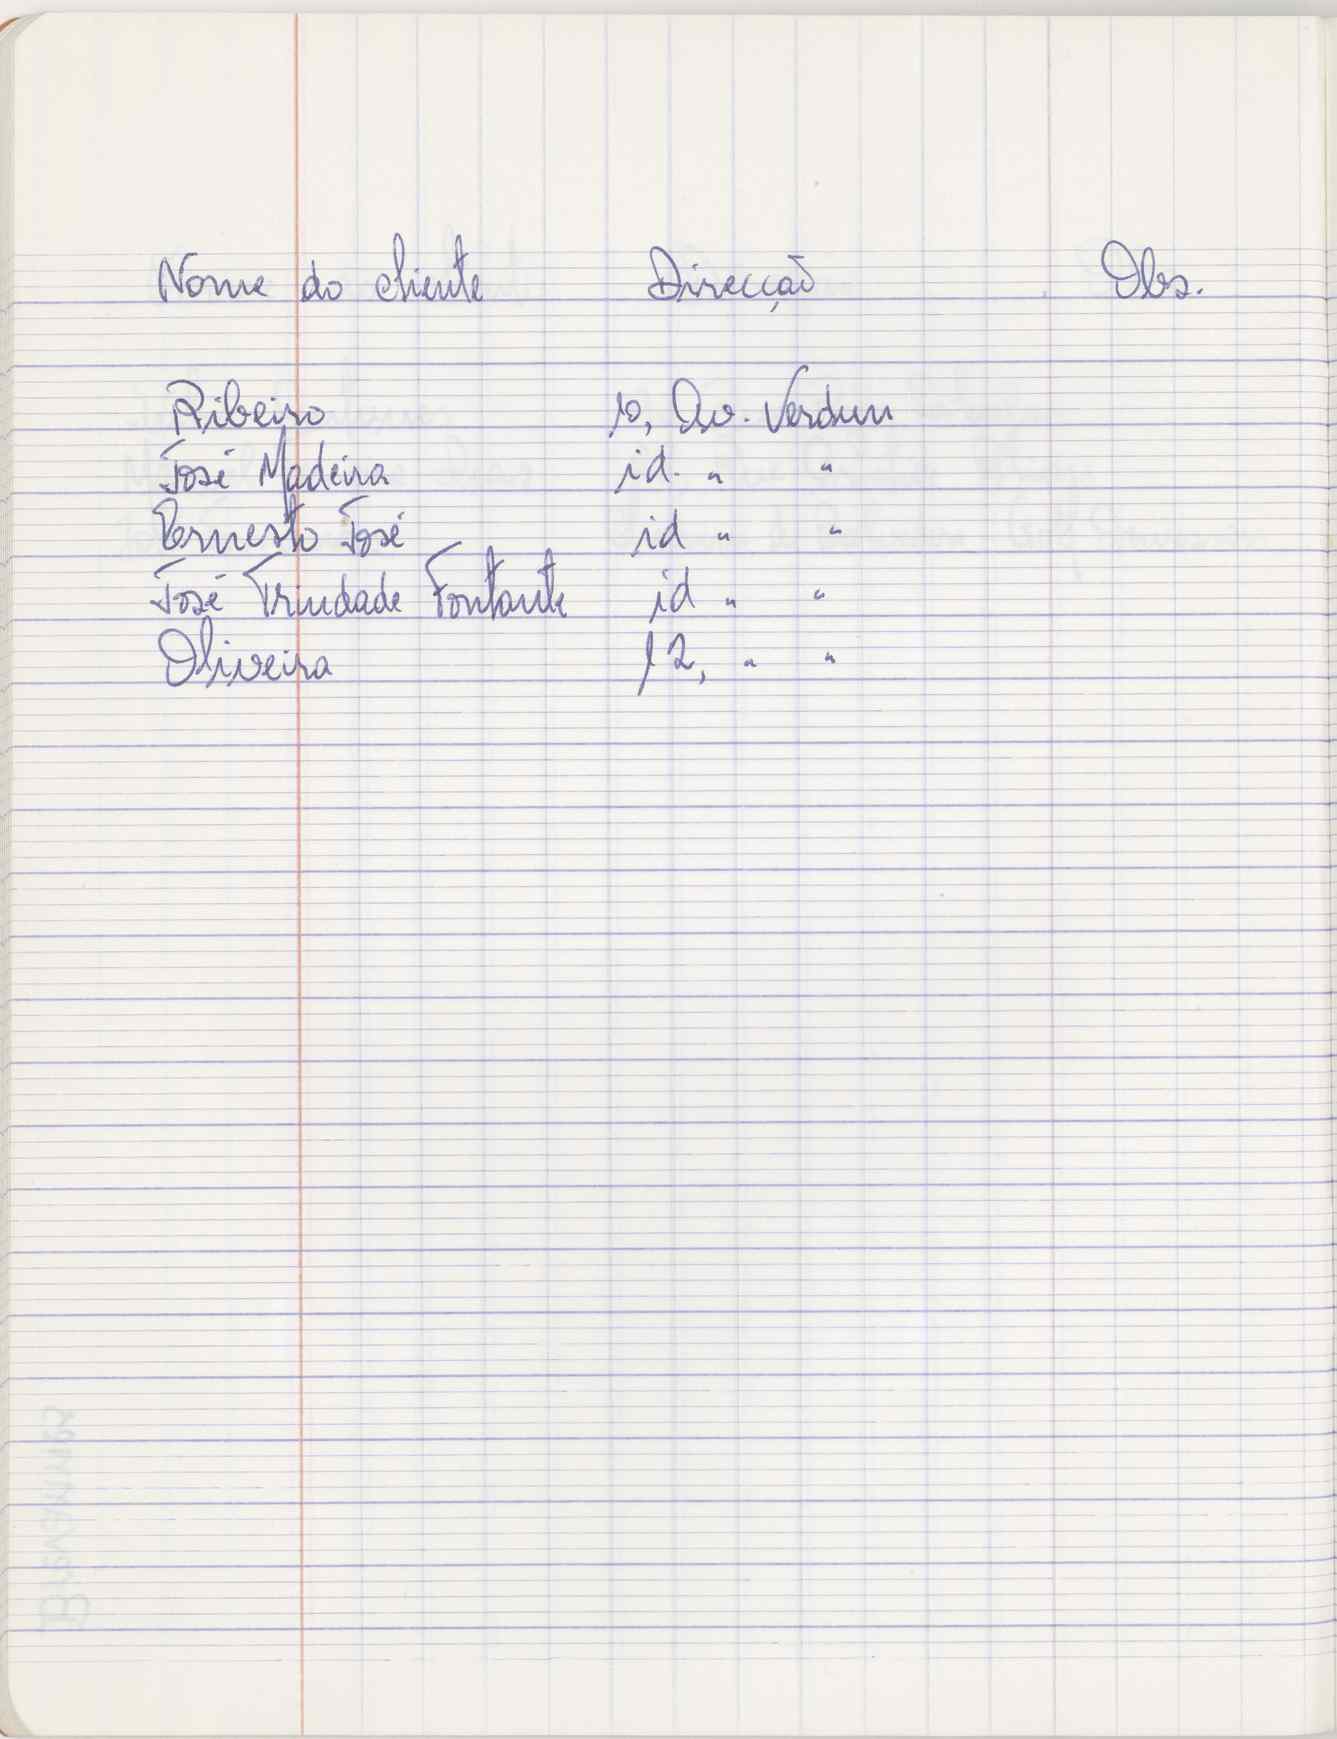 Nome do cliente Direcção Obs.
Ribeiro 10, Av. Verdun
José Madeira id. " "
Ernesto José id " "
José Trindade Fontante id " "
Oliveira 12, " "